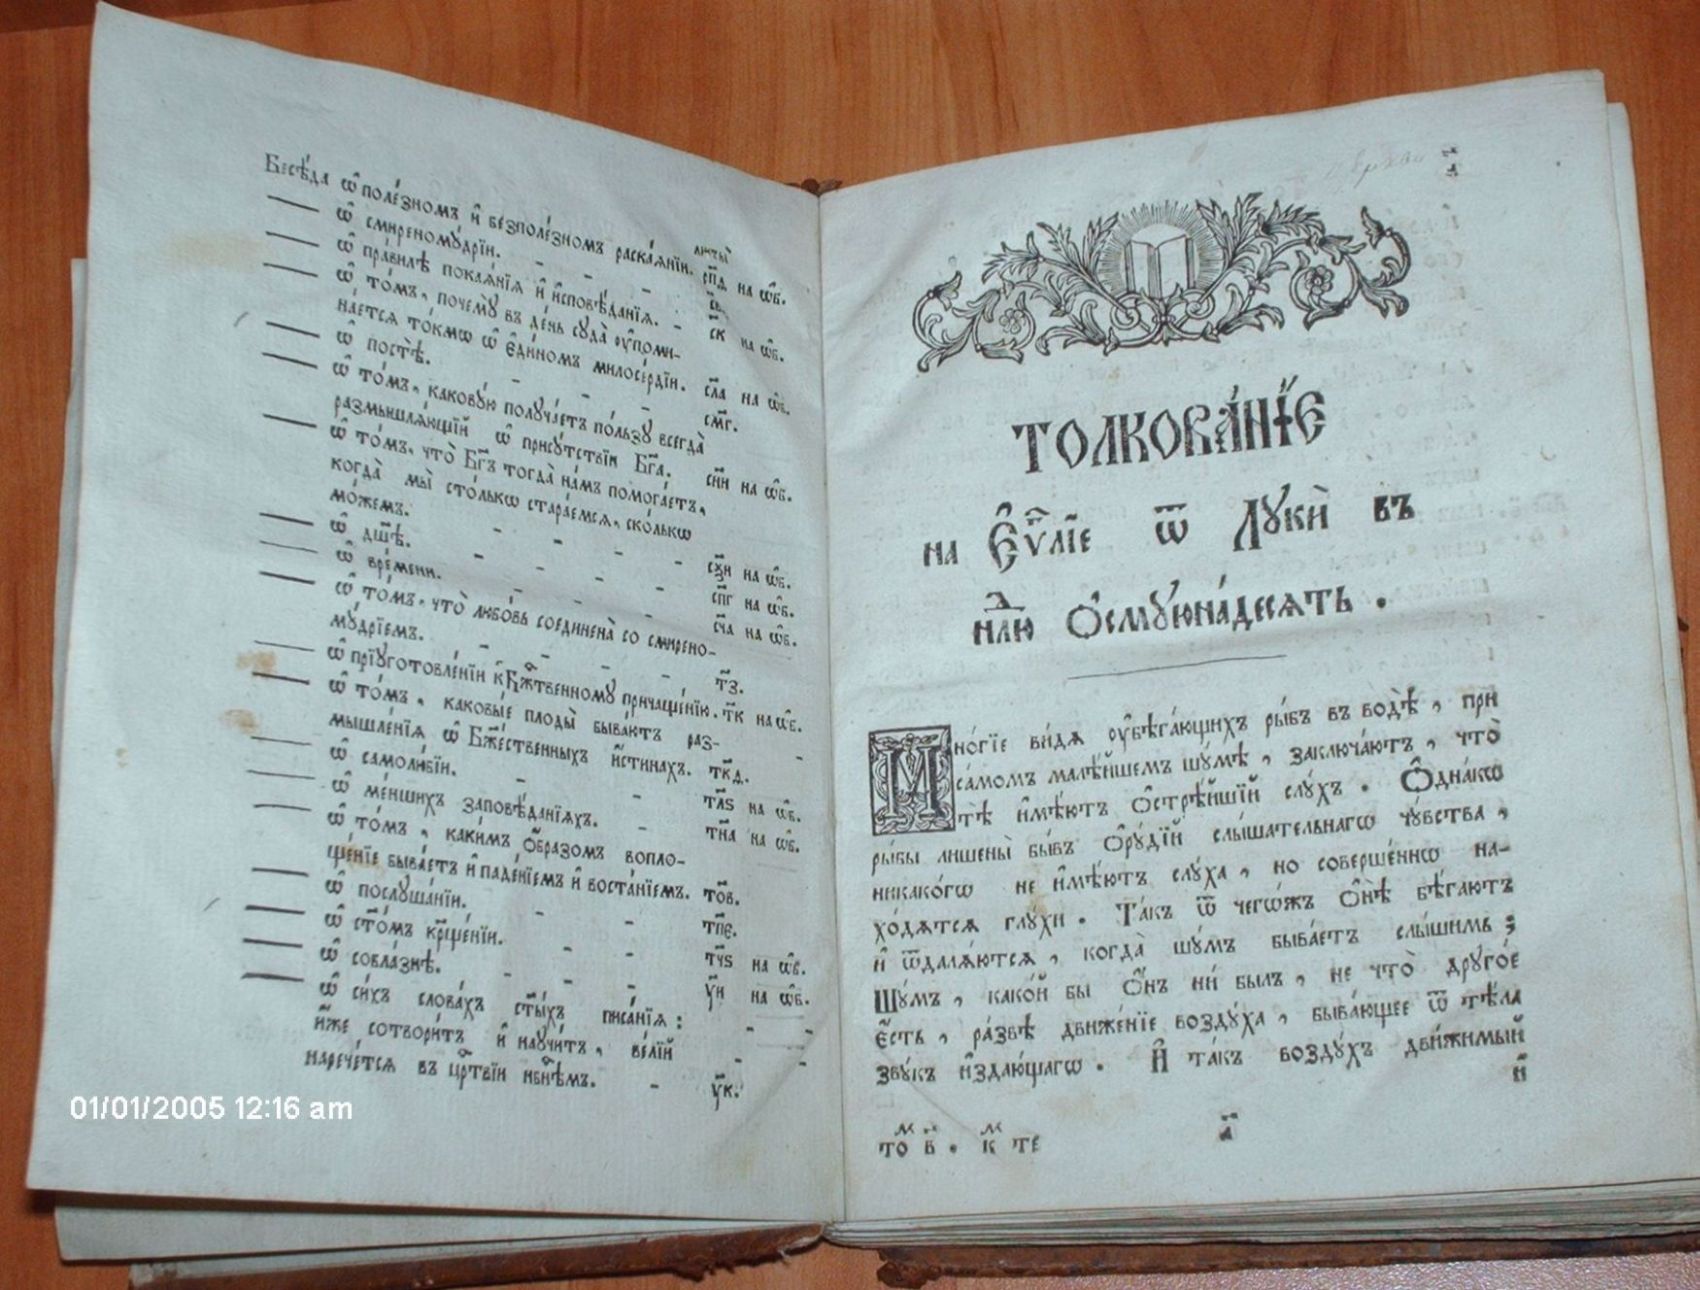 листы̀
Бесѣ́да ѡ҆ поле́зномъ и҆ безполе́зномъ раска́янїи. с҃пд на ѡ҆б.
ѡ҆ смиреномꙋ́дрїи. - - -
ѡ҆ пра́вилѣ покаѧ́нїѧ и҆ и҆сповѣ́данїѧ. - с҃к на ѡ҆б.
ѡ҆ то́мъ, почемꙋ̀ въ де́нь сꙋда̀ ᲂу҆поми-
на́етсѧ то́кмѡ ѡ҆ є҆ди́номъ милосе́рдїи. с҃ла на ѡ҆б.
ѡ҆ постѣ̀. - - - с҃мг.
ѡ҆ то́мъ, каковꙋ́ю полꙋча́етъ по́льзꙋ всегда̀
размышлѧ́ющїй ѡ҆ присꙋ́тствїи Бг҃а. с҃нн на ѡ҆б.
ѡ҆ то́мъ, что̀ Бг҃ъ тогда̀ на́мъ помога́етъ,
когда̀ мы̀ сто́лькѡ стара́емсѧ, ско́лькѡ
мо́жемъ. - - - - с҃ѯи на ѡ҆б.
ѡ҆ дш҃ѣ. - - - - с҃пг на ѡ҆б.
ѡ҆ вре́мени. - - - - с҃ча на ѡ҆б.
ѡ҆ то́мъ, что̀ любо́вь соединена̀ со смирено-
мꙋ́дрїемъ. - - - - т҃з.
ѡ҆ прїꙋготовле́нїи к̾ Бж҃твенномꙋ причаще́нїю. т҃к на ѡ҆б.
ѡ҆ то́мъ, каковы́е плоды̀ быва́ютъ раз- -
мышле́нїѧ ѡ҆ Бж҃е́ственныхъ и҆́стинахъ. т҃кд.
ѡ҆ самолю́бїи. - - т҃лѕ на ѡ҆б.
ѡ҆ ме́ншихъ заповѣ́данїѧхъ. - т҃на на ѡ҆б.
ѡ҆ то́мъ, каки́мъ ѻ҆́бразомъ вопло-
ще́нїе быва́етъ и҆ паде́нїемъ и҆ воста́нїемъ. т҃ов.
ѡ҆ послꙋша́нїи. - - т҃пє.
ѡ҆ ст҃о́мъ кр҃ще́нїи. - - т҃чѕ на ѡ҆б.
ѡ҆ собла́знѣ. - - - у҃и на ѡ҆б.
ѡ҆ си́хъ слова́хъ ст҃ы́хъ писа́нїѧ: - -
и҆́же сотвори́тъ и҆ наꙋчи́тъ, ве́лїй - -
нарече́тсѧ въ цр҃твїи нбⷭ҇нѣмъ. - у҃к.
01/01/2005 12:16 am
а҃
ТОЛКОВА́НЇЕ
на Є҆ѵⷢ҇лїе ѿ Лꙋкѝ въ
нлⷣю Ѻ҆смꙋюна́десѧть.
Мно́гїе ви́дѧ ᲂу҆бѣга́ющихъ ры́бъ въ водѣ̀, при
са́момъ малѣ́йшемъ шꙋ́мѣ, заключа́ютъ, что̀
тѣ̀ и҆мѣ́ютъ ѻ҆стрѣ́йшїй слꙋ́хъ. Ѻ҆дна́кѡ
ры́бы лишены̀ бы́въ ѻ҆рꙋ́дїй слы́шательнагѡ чꙋ́вства,
никако́гѡ не и҆мѣ́ютъ слꙋ́ха, но соверше́ннѡ на-
хо́дѧтсѧ глꙋ́хи. Та́къ ѿ чегѡ́жъ ѻ҆нѣ̀ бѣ́гаютъ
и҆ ѿдалѧ́ютсѧ, когда̀ шꙋ́мъ быва́етъ слы́шимъ;
Шꙋ́мъ, како́й бы ѻ҆́нъ ни́ былъ, не что̀ дрꙋго́е
є҆́сть, ра́звѣ движе́нїе во́здꙋха, быва́ющее ѿ тѣ́ла
звꙋ́къ и҆здаю́щагѡ. И҆ та́къ во́здꙋхъ дви́жимый
и҆
Томⷤ в҃. К҃ те
а҃